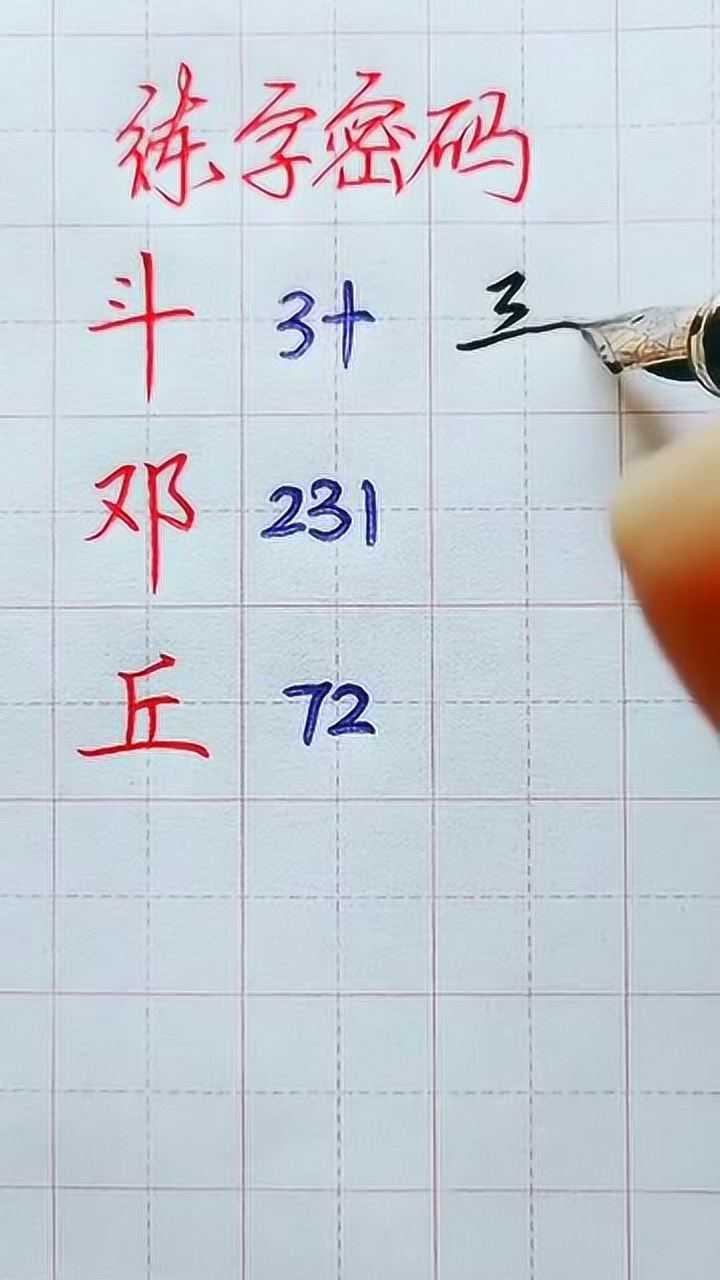 练字密码
斗 3十
邓 231
丘 72